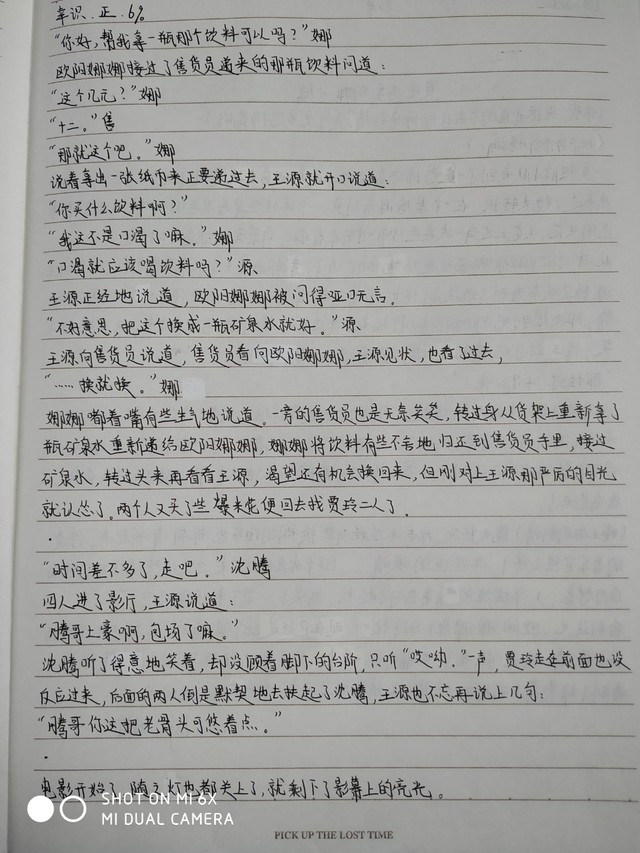 辛识.正.6%
“你好,帮我拿一瓶那个饮料可以吗?”娜
欧阳娜娜接过了售货员递来的那瓶饮料问道:
“这个几元?”娜
“十二。”售
“那就这个吧。”娜
说着拿出一张纸币来正要递过去,王源就开口说道:
“你买什么饮料啊?”
“我这不是口渴了嘛。”娜
“口渴就应该喝饮料吗?”源
王源正经地说道,欧阳娜娜被问得哑口无言。
“不好意思,把这个换成一瓶矿泉水就好。”源
王源向售货员说道,售货员看向欧阳娜娜,王源见状,也看了过去,
“……换就换。”娜
娜娜嘟着嘴有些生气地说道。一旁的售货员也是无奈笑笑,转过身从货架上重新拿了
瓶矿泉水重新递给欧阳娜娜,娜娜将饮料有些不舍地归还到售货员手里,接过
矿泉水,转过头来再看看王源,渴望还有机会换回来,但刚对上王源那严厉的目光
就认怂了。两个人又买了些爆米花便回去找贾玲二人了。
.
“时间差不多了,走吧。”沈腾
四人进了影厅,王源说道:
“腾哥土豪啊,包场了嘛。”
沈腾听了得意地笑着,却没顾着脚下的台阶,只听“哎呦。”一声,贾玲走在前面也没
反应过来,后面的两人倒是默契地去扶起了沈腾,王源也不忘再说上几句:
“腾哥你这把老骨头可悠着点。”
.
电影开始了,随之灯也都关上了,就剩下了影幕上的亮光。
SHOT ON MI 6X
MI DUAL CAMERA
PICK UP THE LOST TIME